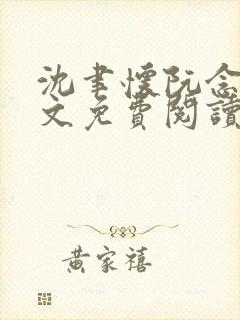 沈聿懷阮念
文免費閱讀
黃家禧